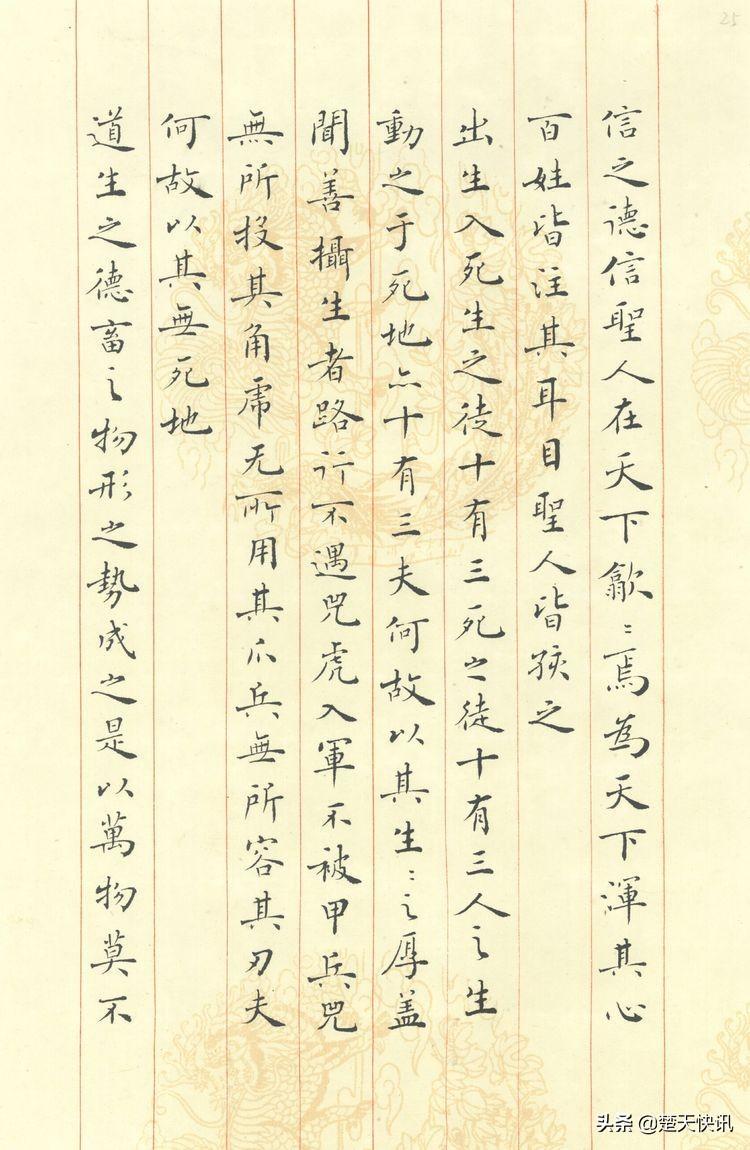 25
信之德信聖人在天下歙〻焉為天下渾其心
百姓皆注其耳目聖人皆孩之
出生入死生之徒十有三死之徒十有三人之生
動之于死地亦十有三夫何故以其生〻之厚盖
聞善攝生者路行不遇兕虎入軍不被甲兵兕
無所投其角虎无所用其爪兵無所容其刃夫
何故以其無死地
道生之德畜之物形之勢成之是以萬物莫不
头条 @楚天快讯